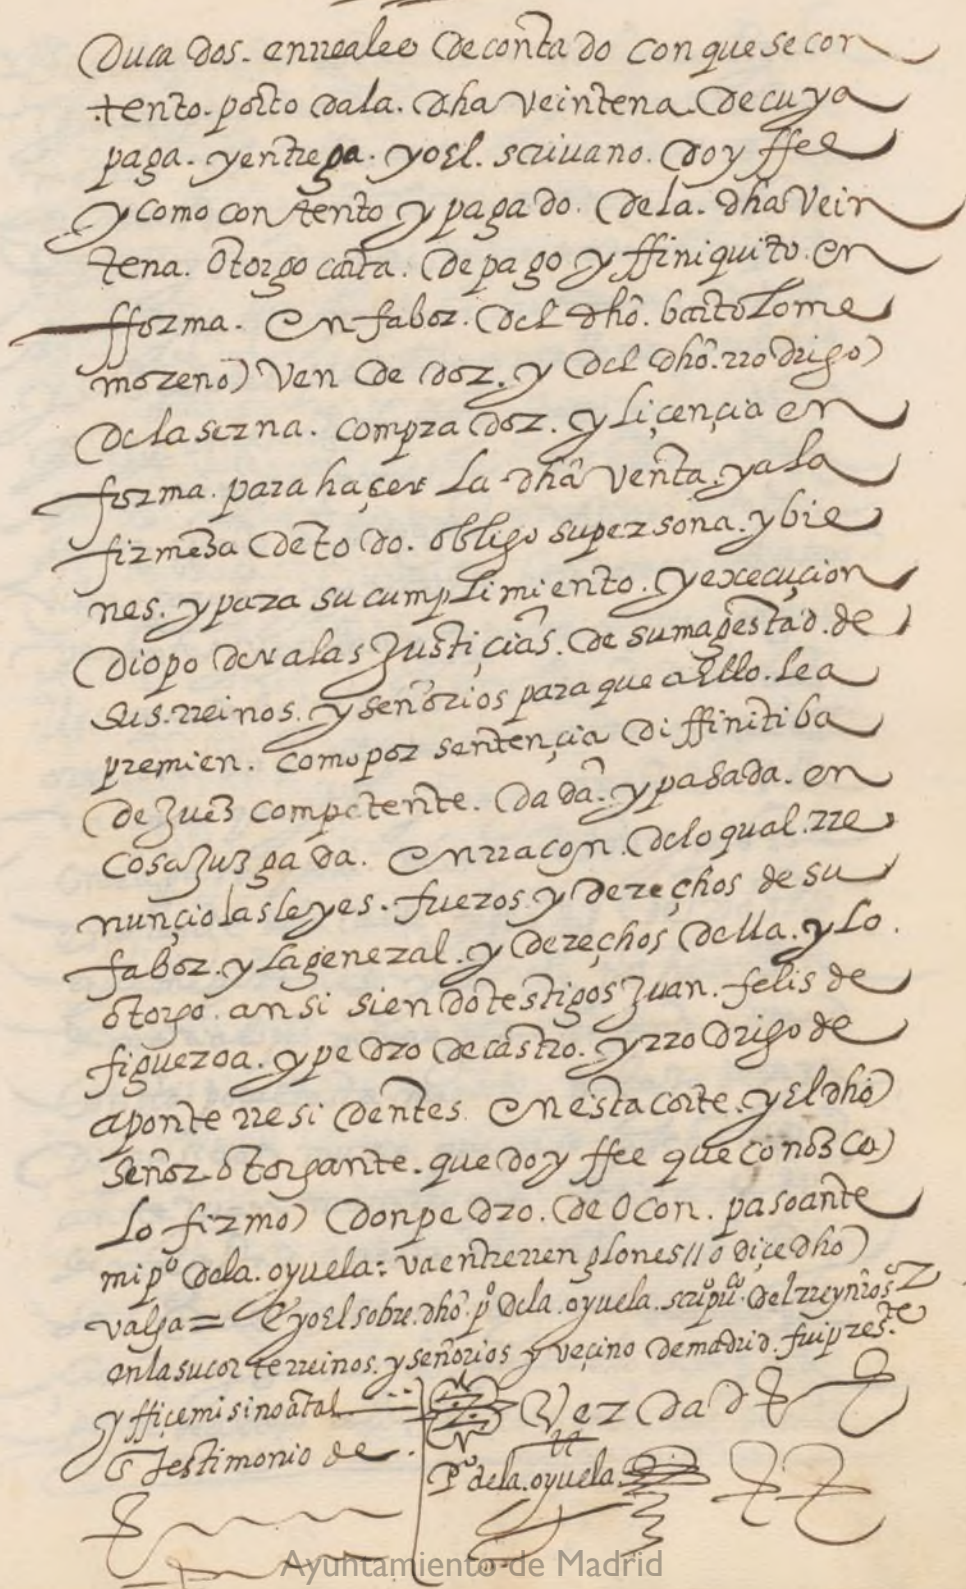 ducados. en rreales de contado con que se con
tento. porto da la. dha veintena de cuya
paga. y entrega. yo El. scriuano. doy ffee
y como contento y pagado. de la. dha Vein
tena. otorgo carta. de pago y ffiniquito. en
fforma. en fabor. del dho. bartolome
moreno) Vendedor. y del dho. rrodrigo)
de la serna. comprador. y liçençia en
forma. para haçer la dha venta. y a la
firmeza de todo. obligo su persona. y bie
nes. y para su cumplimiento. y execuçion
dio poder a las Justiçias. de su magestad. de
sus. rreinos. y señorios para que a Ello. le a
premien. como por sentençia diffinitiba
de Juez competente. dada. y pasada. en
cosa Juzgada. en rraçon. de lo qual. rre
nunçio las leyes. fueros. y dereçhos de su
fabor. y la general. y dereçhos della. y lo.
otorgo. ansi siendo testigos Juan. felis de
figueroa. y pedro de castro. y rrodrigo de
aponte rresidentes. en esta corte. y El dho)
señor otorgante. que doy ffee que conozco)
lo firmo) don pedro. de Ocon. paso ante
mi pº de la. oyuela: va entre rrenglones // o diçe dho)
valga = E yo El sobre. dho. pº de la. oyuela. scriº puº. del rrey nro sºr
en la su corte rreinos. y señorios y veçino de madrid. fui presᵗᵉ
y ffiçe mi sino atal
En testimonio de. Verdad
Pº de la. oyuela
Ayuntamiento de Madrid